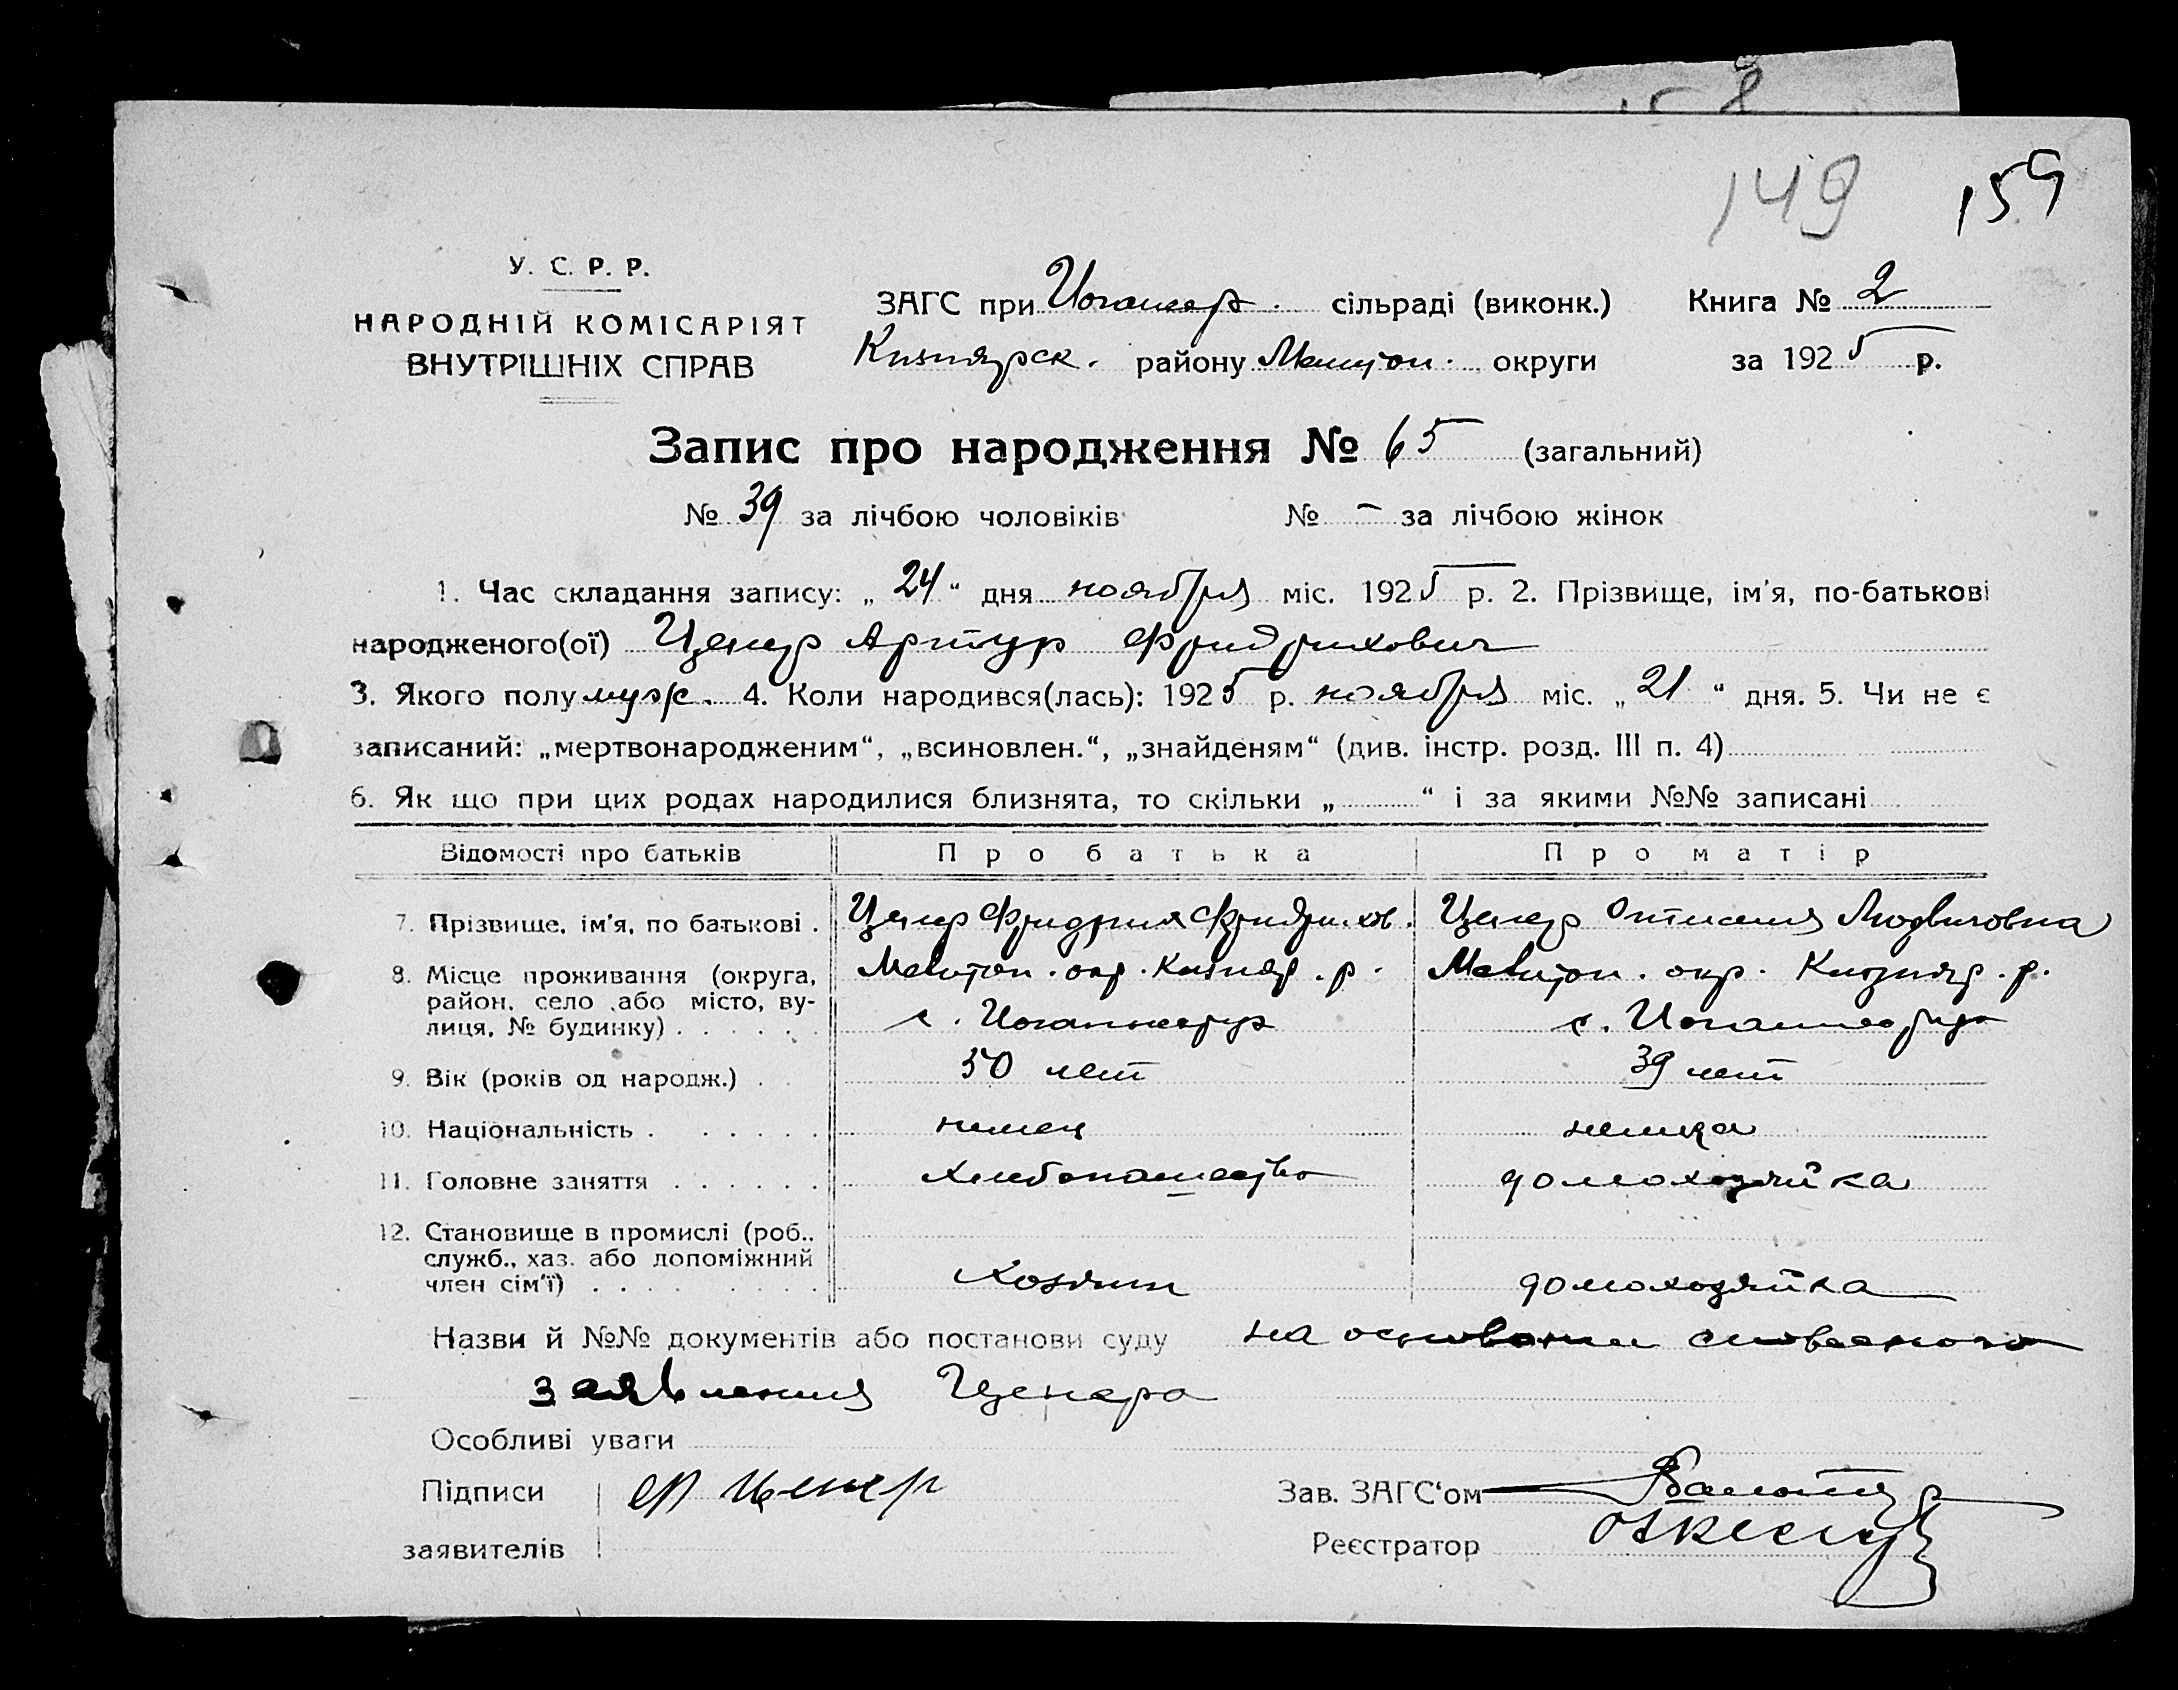 149 159
У. С. Р. Р.
НАРОДНІЙ КОМІСАРІЯТ
ВНУТРІШНІХ СПРАВ
ЗАГС при сільраді (виконк.) Книга № 2
району округи за 1925 р.
Запис про народження № 65 (загальний)
№ 39 за лічбою чоловіків № – за лічбою жінок
1. Час складання запису: „ 24 “ дня ноября міс. 1925 р. 2. Прізвище, ім'я, по-батькові
народженого(ої) Ценер Артур Фридрихович
3. Якого полу муж. 4. Коли народився(лась): 1925 р. ноября міс. „ 21 “ дня. 5. Чи не є
записаний: „мертвонародженим“, „всиновлен.“, „знайденям“ (див. інстр. розд. III п. 4)
6. Як що при цих родах народилися близнята, то скільки „ “ і за якими №№ записані
Відомості про батьків Про батька Про матір
7. Прізвище, ім'я, по батькові . Ценер Фридрих Фридрихов. Ценер Людвиговна
8. Місце проживання (округа, Мелитоп. окр. Кизияр. р. Мелитоп. окр. Кизияр. р.
район, село або місто, ву-
лиця, № будинку) . . . . . . с. с.
9. Вік (років од народж.) . . 50 лет 39 лет
10. Національність . . . . . . немец немка
11. Головне заняття . . . . . . хлебопашество домохозяйка
12. Становище в промислі (роб.,
служб., хаз. або допоміжний
член сім'ї) . . . . . . хозяин домохозяйка
Назви й №№ документів або постанови суду на основании словесного
заявления Ценера
Особливі уваги
Підписи Ф Ценер Зав. ЗАГС‘ом
заявителів Реєстратор